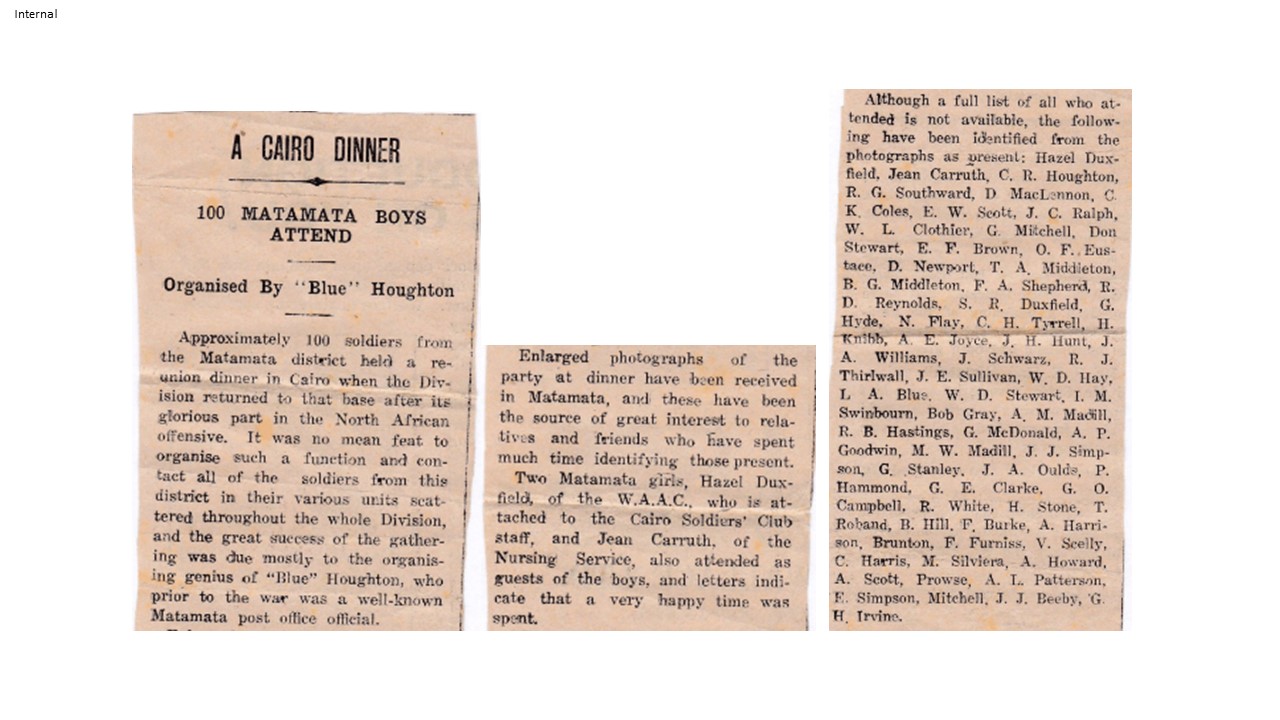 Internal
A CAIRO DINNER
100 MATAMATA BOYS
ATTEND
Organised By "Blue" Houghton
Approximately 100 soldiers from
the Matamata district held a re-
union dinner in Cairo when the Div-
ision returned to that base after its
glorious part in the North African
offensive. It was no mean feat to
organise such a function and con-
tact all of the soldiers from this
district in their various units scat-
tered throughout the whole Division,
and the great success of the gather-
ing was due mostly to the organis-
ing genius of "Blue" Houghton, who
prior to the war was a well-known
Matamata post office official.
Enlarged photographs of the
party at dinner have been received
in Matamata, and these have been
the source of great interest to rela-
tives and friends who have spent
much time identifying those present.
Two Matamata girls, Hazel Dux-
field, of the W.A.A.C., who is at-
tached to the Cairo Soldiers' Club
staff, and Jean Carruth, of the
Nursing Service, also attended as
guests of the boys, and letters indi-
cate that a very happy time was
spent.
Although a full list of all who at-
tended is not available, the follow-
ing have been identified from the
photographs as present: Hazel Dux-
field, Jean Carruth, C. R. Houghton,
R. G. Southward, D. MacLennon, C.
K. Coles, E. W. Scott, J. C. Ralph,
W. L. Clothier, G. Mitchell, Don
Stewart, E. F. Brown, O. F. Eus-
tace, D. Newport, T. A. Middleton,
B. G. Middleton, F. A. Shepherd, R.
D. Reynolds, S. R. Duxfield, G.
Hyde, N. Flay, C. H. Tyrrell, H.
Knibb, A. E. Joyce, J. H. Hunt, J.
A. Williams, J. Schwarz, R. J.
Thirlwall, J. E. Sullivan, W. D. Hay,
L. A. Blue, W. D. Stewart, I. M.
Swinbourn, Bob Gray, A. M. Madill,
R. B. Hastings, G. McDonald, A. P.
Goodwin, M. W. Madill, J. J. Simp-
son, G. Stanley, J. A. Oulds, P.
Hammond, G. E. Clarke, G. O.
Campbell, R. White, H. Stone, T.
Roband, B. Hill, F. Burke, A. Harri-
son, Brunton, F. Furniss, V. Scelly,
C. Harris, M. Silviera, A. Howard,
A. Scott, Prowse, A. L. Patterson,
E. Simpson, Mitchell, J. J. Beeby, G.
H. Irvine.